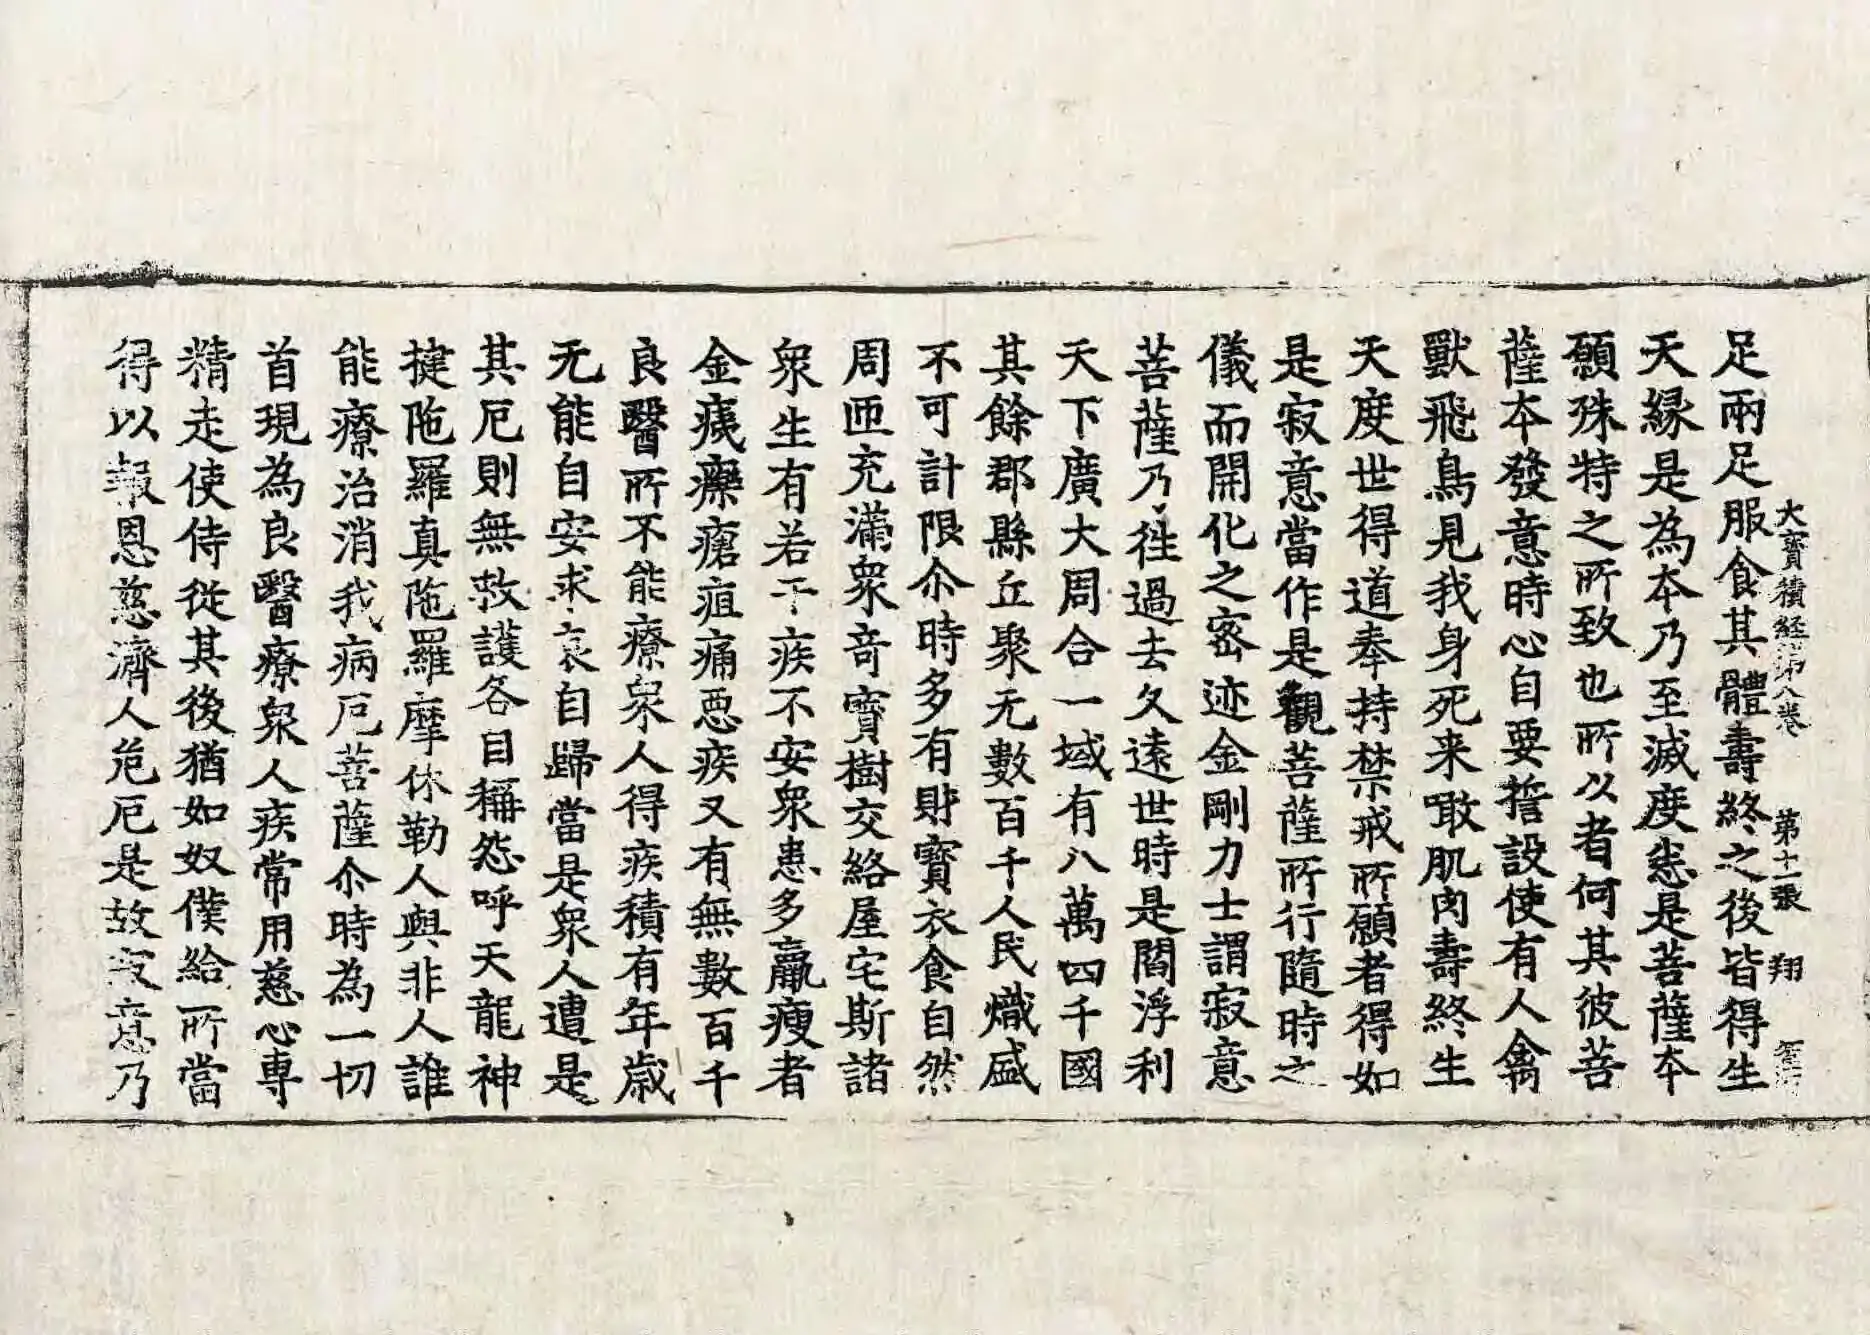 大寶積経苐八卷 第十二張 翔
足兩足服食其體壽終之後皆得生
天縁是為本乃至滅度恙是菩薩本
願殊特之所致也所以者何其彼菩
薩本發意時心自要誓設使有人禽
獸飛鳥見我身死来噉肌肉壽終生
天度世得道奉持禁戒所願者得如
是寂意當作是觀菩薩所行隨時之
儀而開化之密迹金剛力士謂寂意
菩薩乃往過去久遠世時是閻浮利
天下廣大周合一域有八萬四千國
其餘郡縣丘聚无數百千人民熾盛
不可計限尒時多有財寶衣食自然
周匝充滿衆竒寶樹交絡屋宅斯諸
衆生有若干疾不安衆患多羸瘦者
金痍癩瘡疽痛惡疾又有無數百千
良醫所不能療衆人得疾積有年歲
无能自安求哀自歸當是衆人遭是
其厄則無救護各目稱怨呼天龍神
揵陁羅真陁羅摩休勒人與非人誰
能療治消我病厄菩薩尒時為一切
首現為良醫療衆人疾常用慈心専
精走使侍從其後猶如奴僕給所當
得以報恩慈濟人危厄是故寂意乃